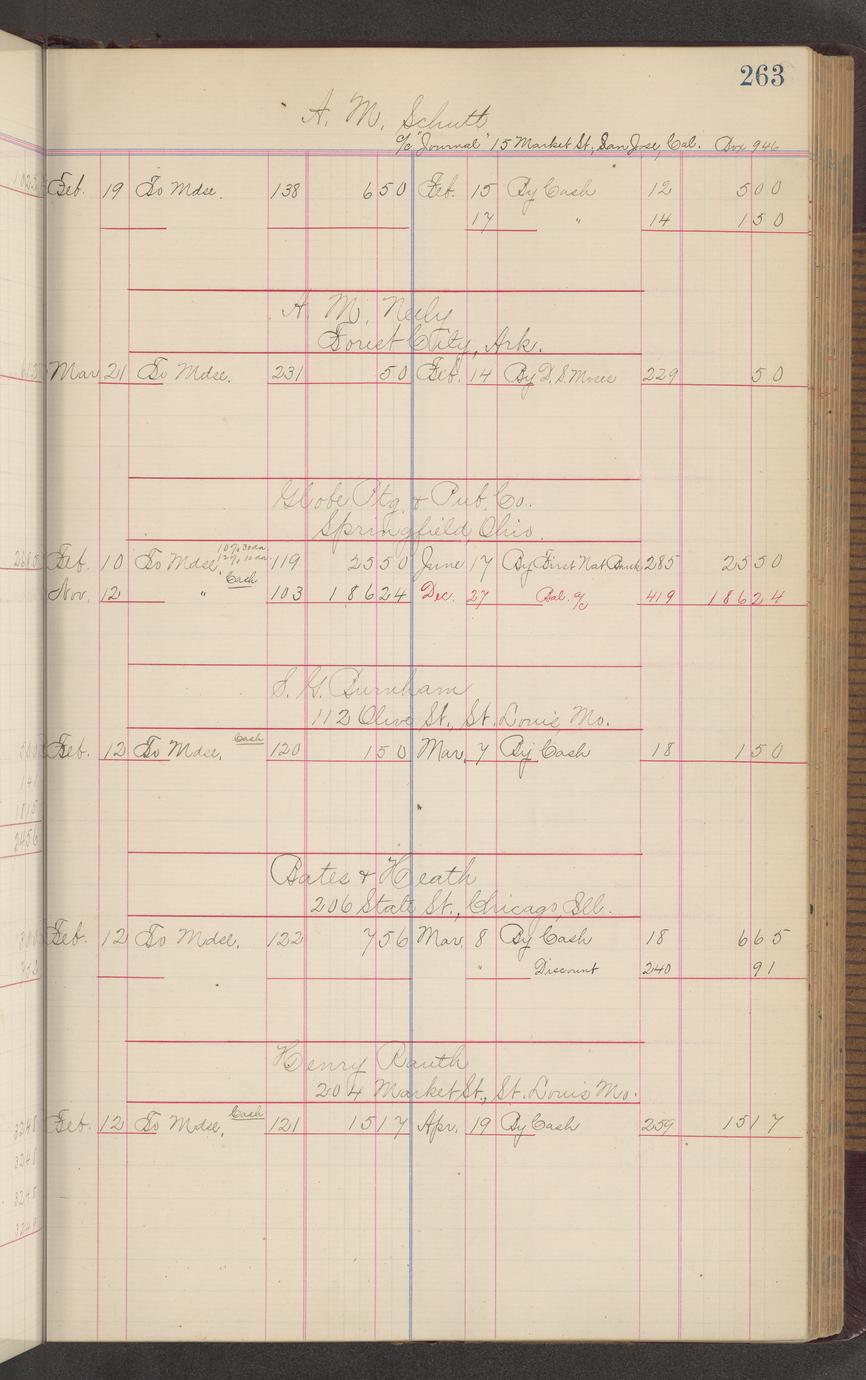 263
A. M. Schutt
c/o "Journal" 15 Market St., San Jose, Cal. Box 946
Feb. 19 To Mdse. 138 6 50 Feb. 15 By Cash 12 5 00
17 " 14 1 50
A. M. Neely
Forest City, Ark.
Mar 21 To Mdse. 231 50 Feb. 14 By D. S. Moses 229 50
Globe Ptg. & Pub. Co.
Springfield Ohio.
10% 30 da
12% 10 da
Feb. 10 To Mdse. 119 25 50 June 17 By First Nat Bank 285 25 50
Cash
Nov. 12 " 103 186 24 Dec. 27 Bal. a/c 419 186 24
S. G. Burnham
112 Olive St., St. Louis, Mo.
Feb. 12 To Mdse, Cash 120 1 50 Mar. 7 By Cash 18 1 50
Bates & Heath
206 State St., Chicago, Ill.
Feb. 12 To Mdse. 122 7 56 Mar. 8 By Cash 18 6 65
" Discount 240 91
Henry Rauth
204 Market St., St. Louis Mo.
Feb. 12 To Mdse, Cash 121 15 17 Apr. 19 By Cash 259 15 17